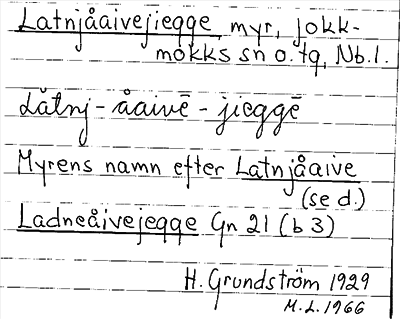 Latnjåaivejiegge, myr, jokk-
mokks sn o. tg, Nb. l.
Lătnj - åaivē - jieggē
Myrens namn efter Latnjåaive
(se d.)
Ladneåivejegge Gn 21 (b 3)
H. Grundström 1929
M.L. 1966